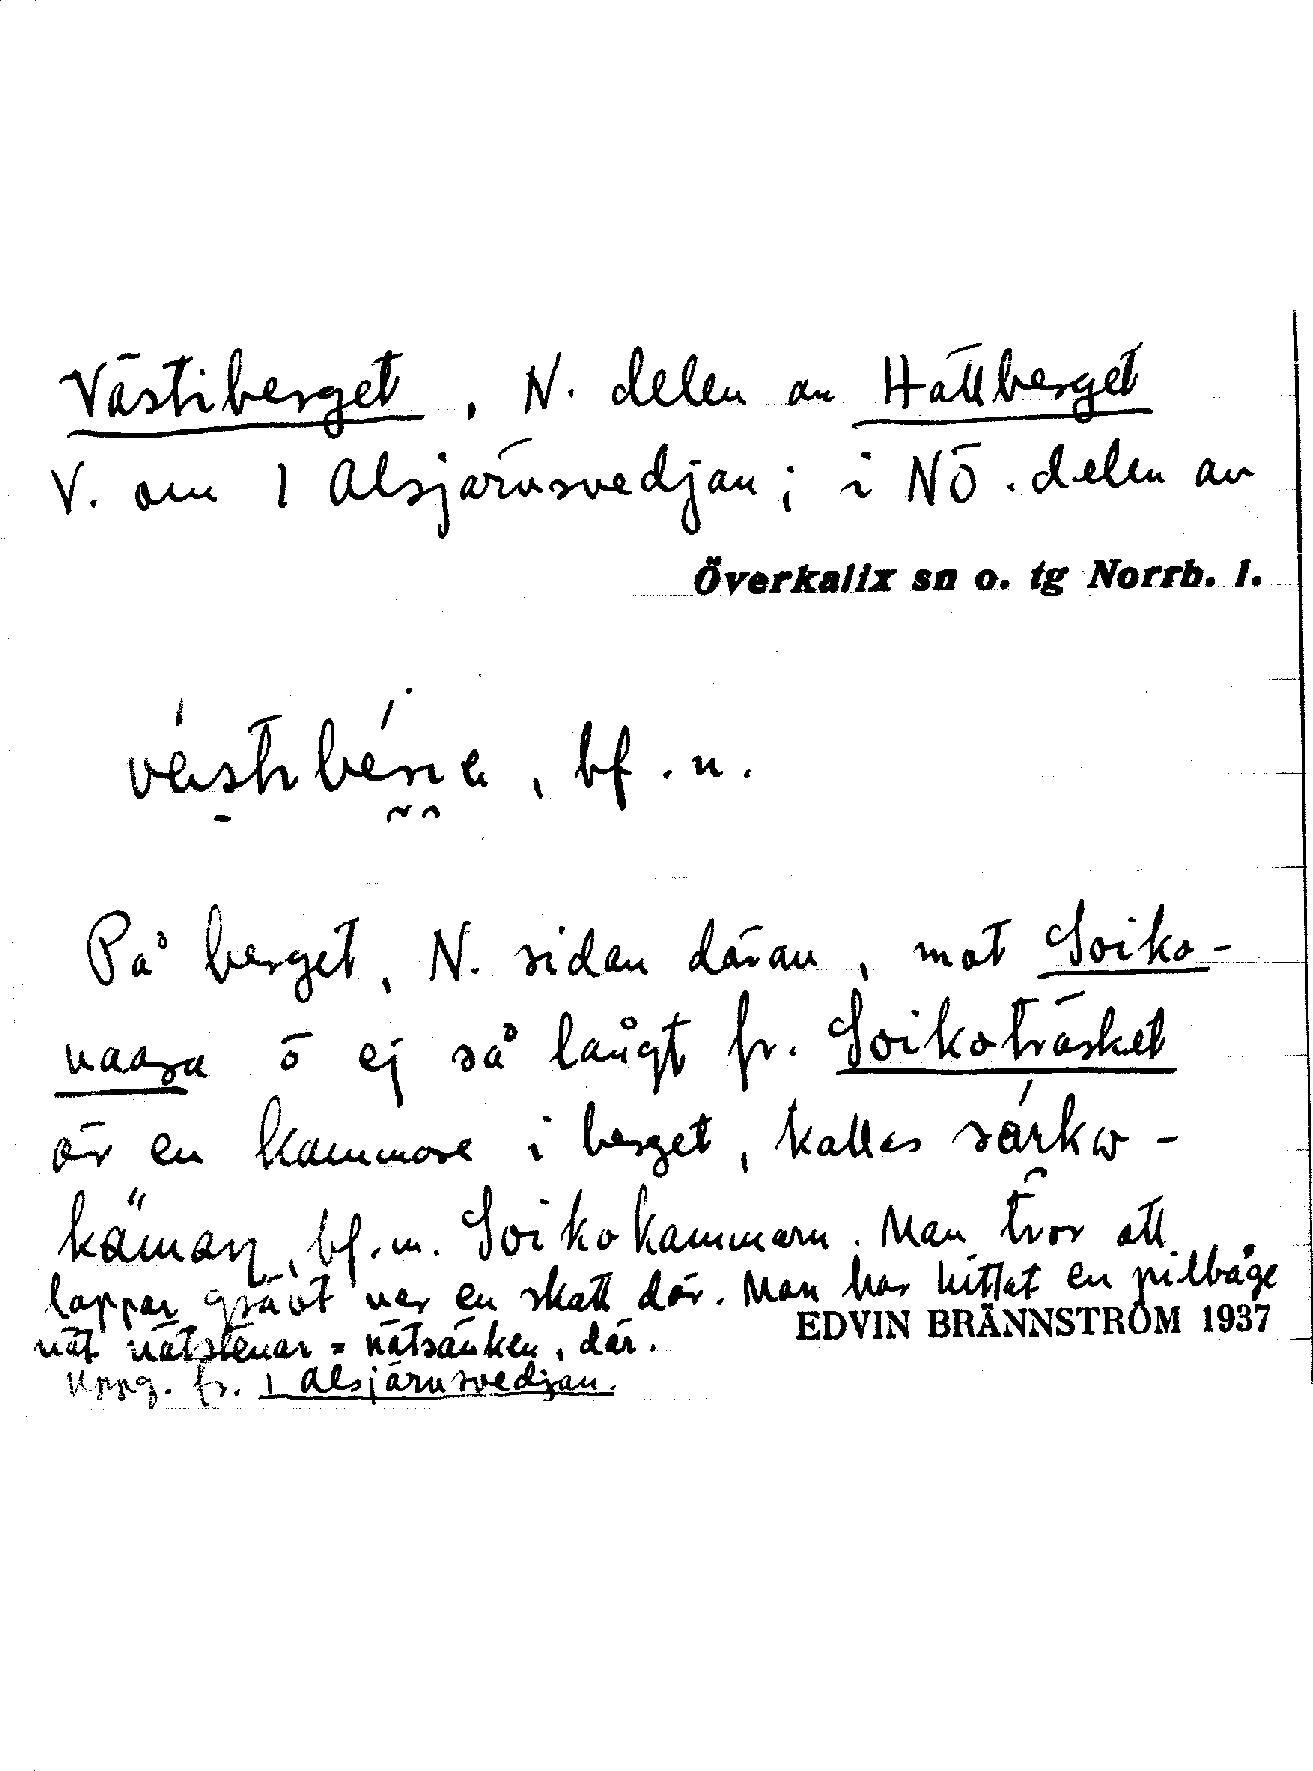 Västiberget, N. delen av Hällberget
V. om 1 Alsjärvsvedjan; i NÖ. delen av
Överkalix sn o. tg Norrb. l.
bf. n.
På berget, N. sidan därav, mot Soiko-
vaara o ej så långt fr. Soikoträsket
är en kammare i berget, kallas
bf. m. Soikokammarn. Man tror att
lappar grävt ner en skatt där. Man har hittat en pilbåge
nät nätstenar = nätsänken, där.
EDVIN BRÄNNSTRÖM 1937
Uppg. fr. 1 Alsjärvsvedjan.